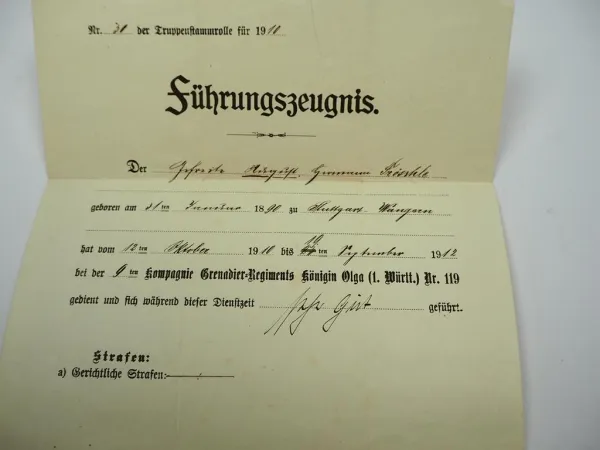 Nr. 30 der Truppenstammrolle für 1910
Führungszeugnis.
Der Gefreite August Hermann
geboren am 31ten Januar 1890 zu Stuttgart-Wangen
hat vom 12ten Oktober 1910 bis 19ten September 1912
bei der 9ten Kompagnie Grenadier-Regiments Königin Olga (1. Württ.) Nr. 119
gedient und sich während dieser Dienstzeit sehr Gut geführt.
Strafen:
a) Gerichtliche Strafen: